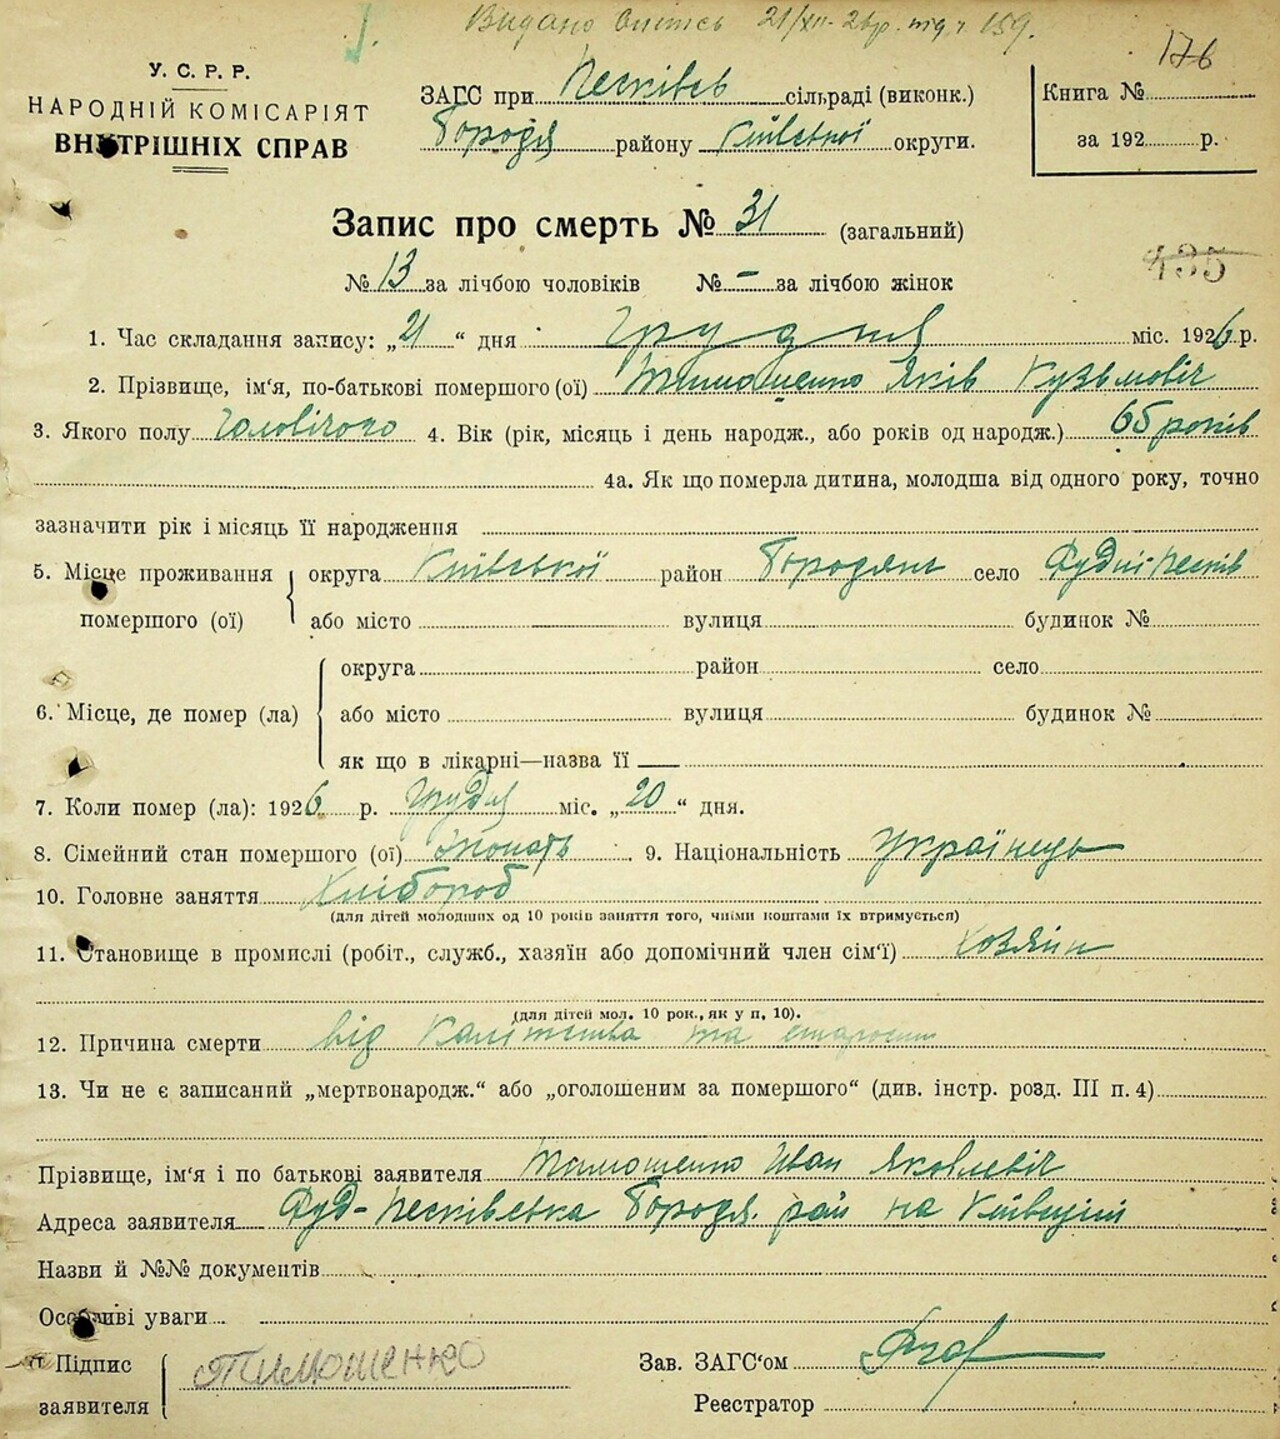 Видано Витяг 21/XII-26р. під ч. 159.
176
У. С. Р. Р.
НАРОДНІЙ КОМІСАРІЯТ
ВНУТРІШНІХ СПРАВ
ЗАГС при Песківсь сільраді (виконк.)
Бородя району Київської округи.
Книга №
за 192 р.
Запис про смерть № 31 (загальний)
435
№ 13 за лічбою чоловіків № – за лічбою жінок
1. Час складання запису: „21“ дня грудня міс. 1926 р.
2. Прізвище, ім‘я, по-батькові помершого (ої) Тимошенко Яків Кузьмовіч
3. Якого полу Чоловічого 4. Вік (рік, місяць і день народж., або років од народж.) 65 років
4а. Як що померла дитина, молодша від одного року, точно
зазначити рік і місяць її народження
5. Місце проживання помершого (ої) округа Київської район Бородянс село Рудні-Песків
або місто вулиця будинок №
6. Місце, де помер (ла) округа район село
або місто вулиця будинок №
як що в лікарні—назва її
7. Коли помер (ла): 1926 р. грудня міс. „20“ дня.
8. Сімейний стан помершого (ої) Жонать 9. Національність Українець
10. Головне заняття Хлібороб
(для дітей молодших од 10 років заняття того, чиїми коштами їх втримується)
11. Становище в промислі (робіт., служб., хазяїн або допомічний член сім‘ї) хозяїн
(для дітей мол. 10 рок., як у п. 10).
12. Причина смерти від Каліцтва та старости
13. Чи не є записаний „мертвонародж.“ або „оголошеним за помершого“ (див. інстр. розд. III п. 4)
Прізвище, ім‘я і по батькові заявителя Тимошенко Иван Яковлевіч
Адреса заявителя Руд-Песківська Бородя. рай на Київщіні
Назви й №№ документів
Особливі уваги
Підпис заявителя Тимошенко
Зав. ЗАГС‘ом
Реєстратор